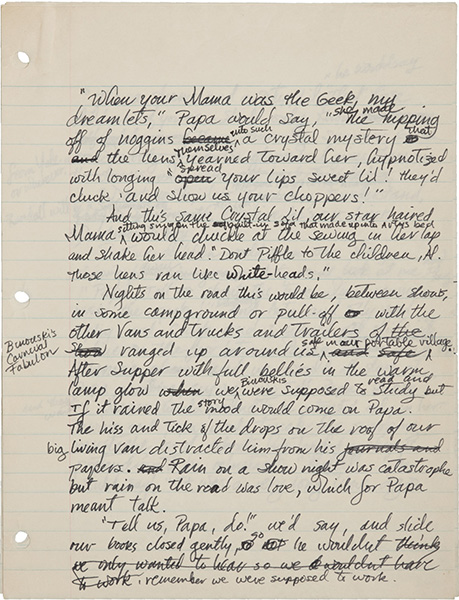 "When your Mama was the Geek, my
dreamlets," Papa would say, "she made the nipping
off of noggins became into such a crystal mystery that
and the hens themselves yearned toward her, hypnotized
with longing "open spread your lips sweet Lil! they'd
cluck and show us your choppers!"
And this same Crystal Lil, our star haired
Mama sitting snug on the built-in sofa that made up into Arty's bed would chuckle at the sewing in her lap
and shake her head. "Don't Piffle to the children, Al.
Those hens ran like white-heads."
Nights on the road this would be, between shows,
in some campground or pull-off with the
other Vans and Trucks and Trailers of the
Binewski's
Carnival
Fabulon
Show ranged up around us safe in our and safe portable village.
After Supper with full bellies in the warm
lamp glow when we Binewskis were supposed to read and study but
If it rained the story mood would come on Papa.
The hiss and tick of the drops on the roof of our
big living van distracted him from his journals and
papers. and Rain on a show night was catastrophe
but rain on the road was love, which for Papa
meant talk.
"Tell us, Papa, do!" we'd say, and slide
our books closed gently, so he wouldn't think
we only wanted to hear so we wouldn't have
to work. remember we were supposed to work.